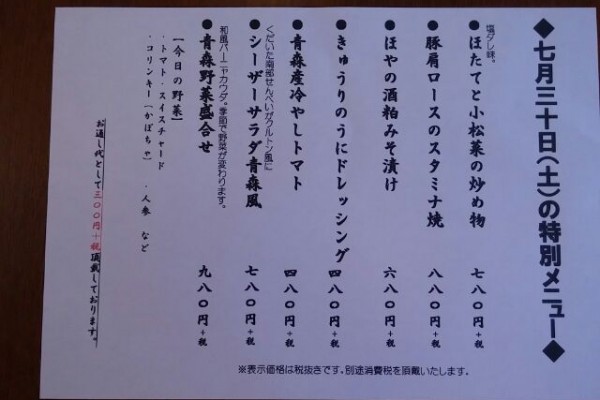 ◆七月三十日(土)の特別メニュー◆
●ほたてと小松菜の炒め物 七八〇円+税
塩ダレ味。
●豚肩ロースのスタミナ焼 八八〇円+税
●ほやの酒粕みそ漬け 六八〇円+税
●きゅうりのうにドレッシング 四八〇円+税
●青森産冷やしトマト 四八〇円+税
くだいた南部せんべいがクルトン風に
●シーザーサラダ青森風 七八〇円+税
●青森野菜盛合せ 九八〇円+税
和風バーニャカウダ。季節で野菜が変わります。
【今日の野菜】
・トマト・スイスチャード
・コリンキー(かぼちゃ) ・人参 など
お通し代として三〇〇円+税頂戴しております。
※表示価格は税抜きです。別途消費税を頂戴いたします。